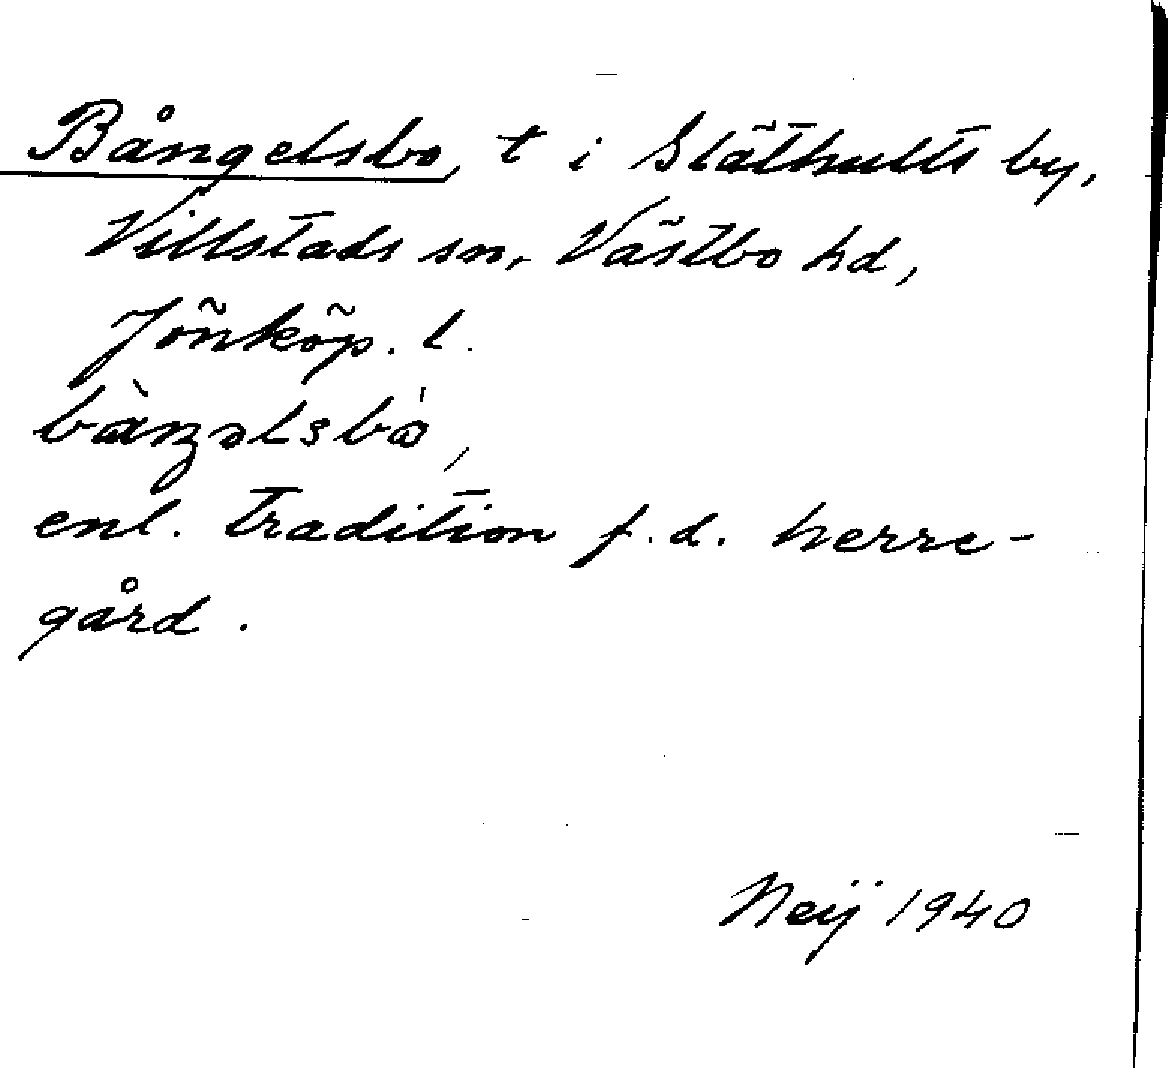 Bångelsbo, t i Släthults by,
Villstads sn, Västbo hd,
Jönköp. l.
enl. tradition f.d. herre-
gård.
Neij 1940